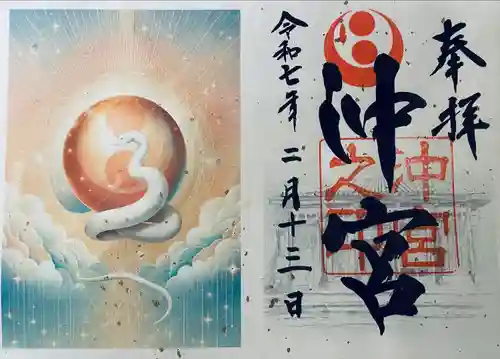 奉拝
沖宮
沖宮
之印
令和七年
二月十三日